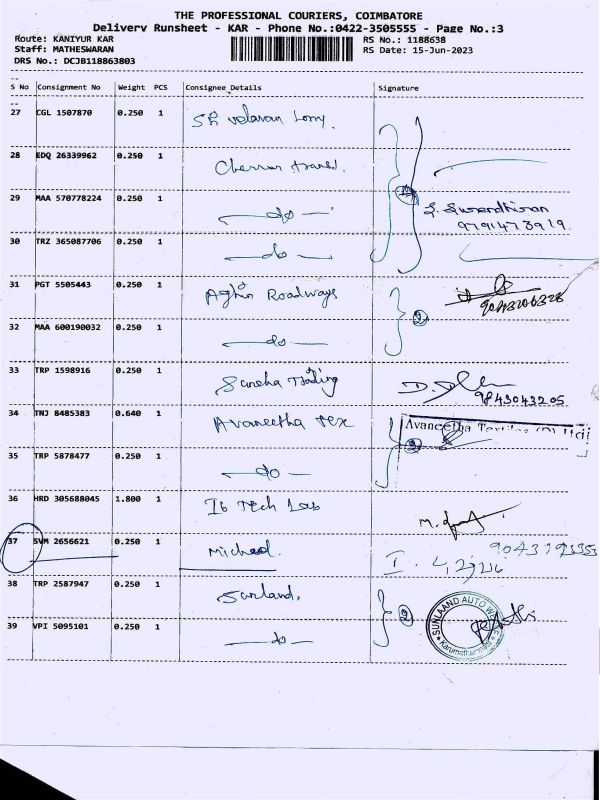 THE PROFESSIONAL COURIERS, COIMBATORE
Delivery Runsheet - KAR - Phone No.:0422-3505555 - Page No.:3
Route: KANIYUR KAR
RS No.: 1188638
Staff: MATHESWARAN
RS Date: 15-Jun-2023
DRS No.: DCJB118863803
S No Consignment No Weight PCS Consignee Details Signature
27 CGL 1507870 0.250 1 Velavan Lorry
28 EDQ 26339962 0.250 1 Cherran
29 MAA 570778224 0.250 1 do
S. Surendhiran
30 TRZ 365087706 0.250 1 do
31 PGT 5505443 0.250 1 Roadways
32 MAA 600190032 0.250 1 do
33 TRP 1598916 0.250 1 Trading
9843043205
34 TNJ 8485383 0.640 1 Avaneetha Tex
Avaneetha
35 TRP 5878477 0.250 1 do
36 HRD 305688045 1.800 1 Tech Lab
37 SVM 2656621 0.250 1 Michael
38 TRP 2587947 0.250 1 Sunland
2
SUNLAAND AUTO
39 VPI 5095101 0.250 1 do